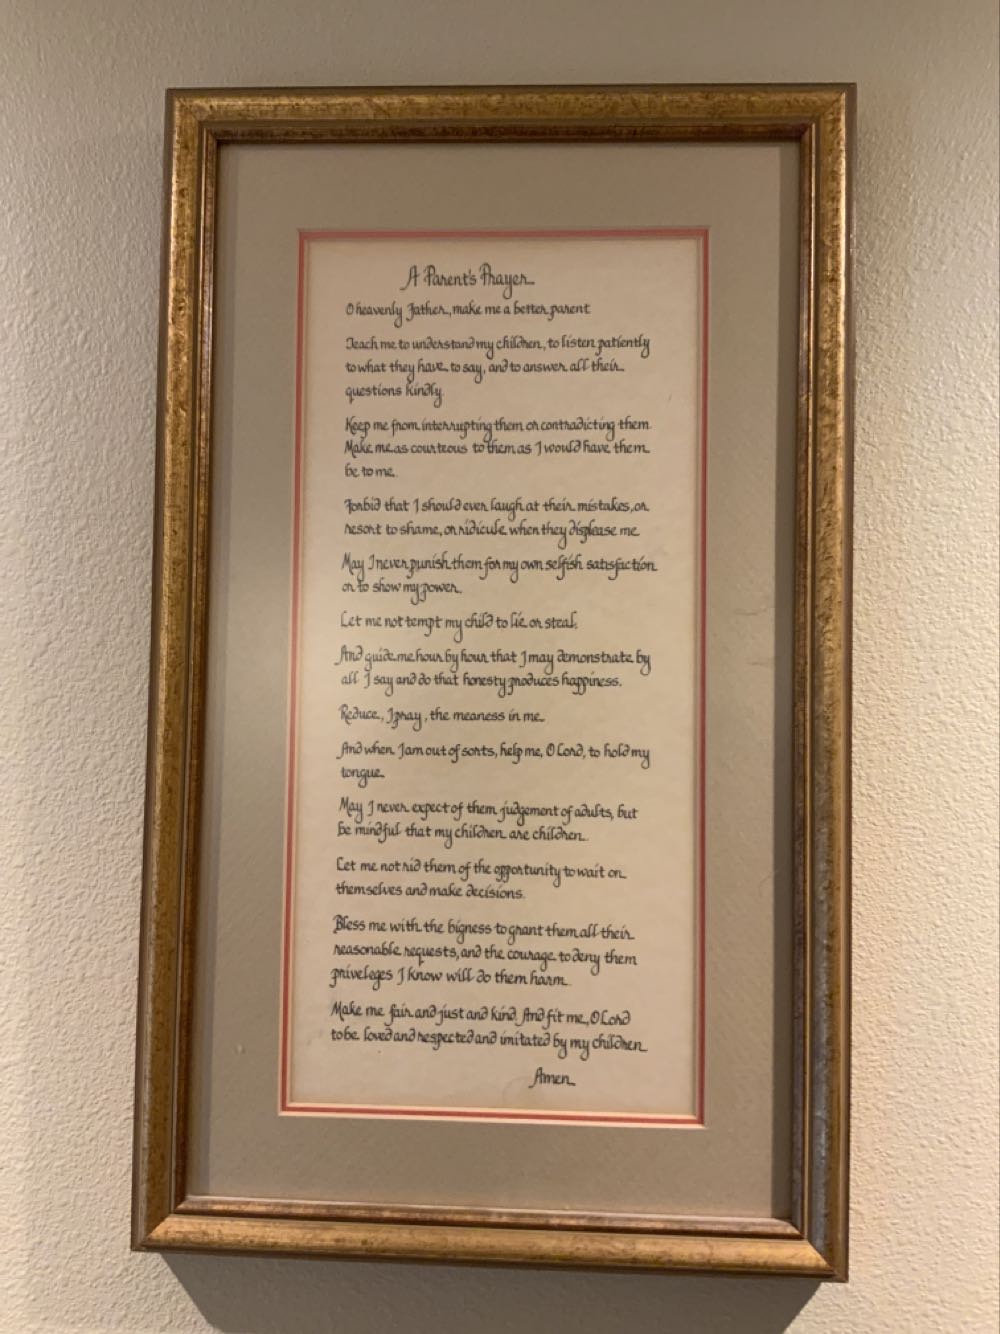 A Parent's Prayer
O heavenly Father, make me a better parent
Teach me to understand my children, to listen patiently
to what they have to say, and to answer all their
questions kindly.
Keep me from interrupting them or contradicting them.
Make me as courteous to them as I would have them
be to me.
Forbid that I should ever laugh at their mistakes, or
resort to shame, or ridicule when they displease me
May I never punish them for my own selfish satisfaction
or to show my power.
Let me not tempt my child to lie or steal,
And guide me hour by hour that I may demonstrate by
all I say and do that honesty produces happiness.
Reduce, I pray, the meaness in me
And when I am out of sorts, help me, O Lord, to hold my
tongue
May I never expect of them judgement of adults, but
be mindful that my children are children.
Let me not rid them of the opportunity to wait on
themselves and make decisions.
Bless me with the bigness to grant them all their
reasonable requests, and the courage to deny them
priveleges I know will do them harm.
Make me fair and just and kind. And fit me, O Lord
to be loved and respected and imitated by my children
Amen